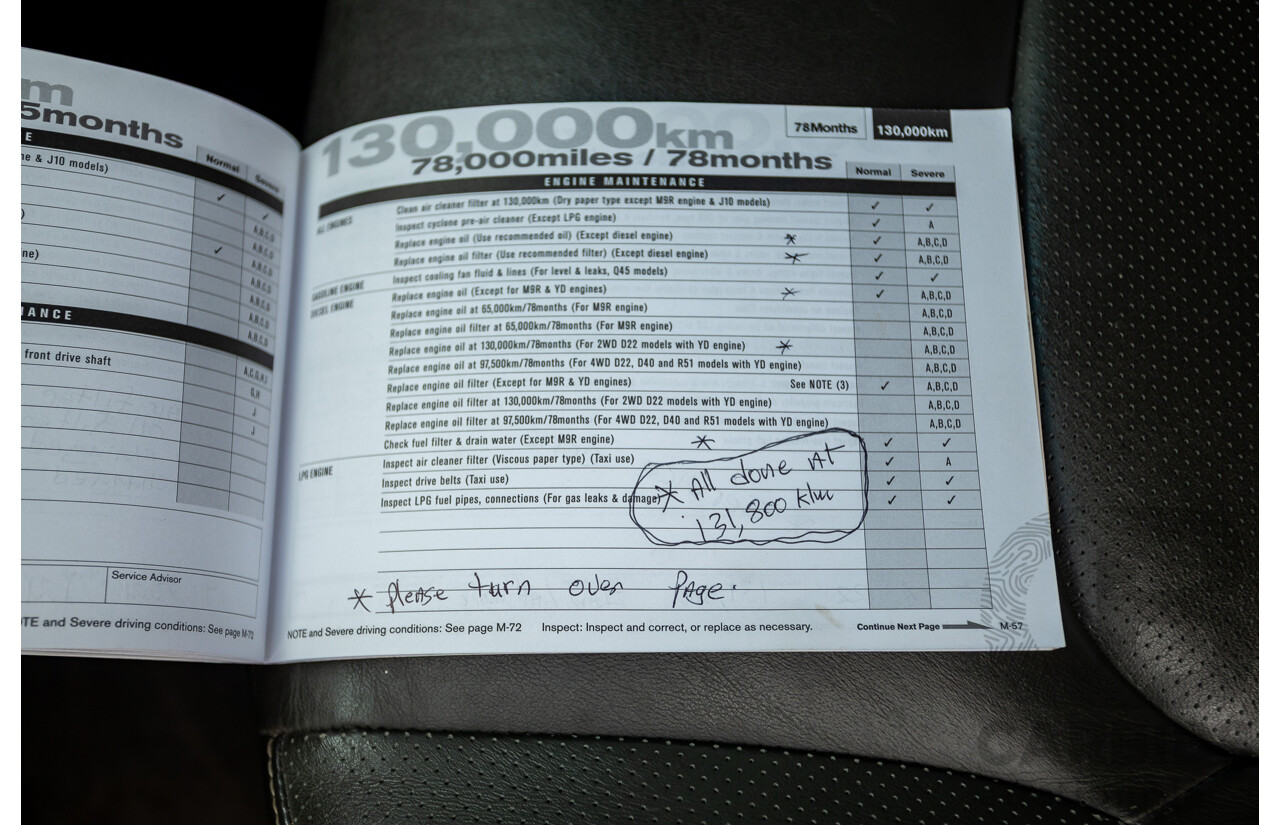 m
5months
E
ne & J10 models)
Normal
Severe
✓
✓
A,B,C,D
)
A,B,C,D
ne)
✓
A,B,C,D
A,B,C,D
A,B,C,D
A,B,C,D
A,B,C,D
IANCE
front drive shaft
A,C,G,H,I
G,H
J
J
Service Advisor
TE and Severe driving conditions: See page M-72
130,000km
78Months
130,000km
78,000miles / 78months
ENGINE MAINTENANCE
Normal
Severe
ALL ENGINES
Clean air cleaner filter at 130,000km (Dry paper type except M9R engine & J10 models) ✓ ✓
Inspect cyclone pre-air cleaner (Except LPG engine) ✓ A
Replace engine oil (Use recommended oil) (Except diesel engine) * ✓ A,B,C,D
Replace engine oil filter (Use recommended filter) (Except diesel engine) * ✓ A,B,C,D
GASOLINE ENGINE
Inspect cooling fan fluid & lines (For level & leaks, Q45 models) ✓ ✓
DIESEL ENGINE
Replace engine oil (Except for M9R & YD engines) * ✓ A,B,C,D
Replace engine oil at 65,000km/78months (For M9R engine) A,B,C,D
Replace engine oil filter at 65,000km/78months (For M9R engine) A,B,C,D
Replace engine oil at 130,000km/78months (For 2WD D22 models with YD engine) * A,B,C,D
Replace engine oil at 97,500km/78months (For 4WD D22, D40 and R51 models with YD engine) A,B,C,D
Replace engine oil filter (Except for M9R & YD engines) See NOTE (3) ✓ A,B,C,D
Replace engine oil filter at 130,000km/78months (For 2WD D22 models with YD engine) A,B,C,D
Replace engine oil filter at 97,500km/78months (For 4WD D22, D40 and R51 models with YD engine) A,B,C,D
Check fuel filter & drain water (Except M9R engine) * ✓ ✓
LPG ENGINE
Inspect air cleaner filter (Viscous paper type) (Taxi use) ✓ A
Inspect drive belts (Taxi use) ✓ ✓
Inspect LPG fuel pipes, connections (For gas leaks & damage) ✓ ✓
* All done At
131,800 klm
* please turn over PAge.
NOTE and Severe driving conditions: See page M-72
Inspect: Inspect and correct, or replace as necessary.
Continue Next Page
M-57